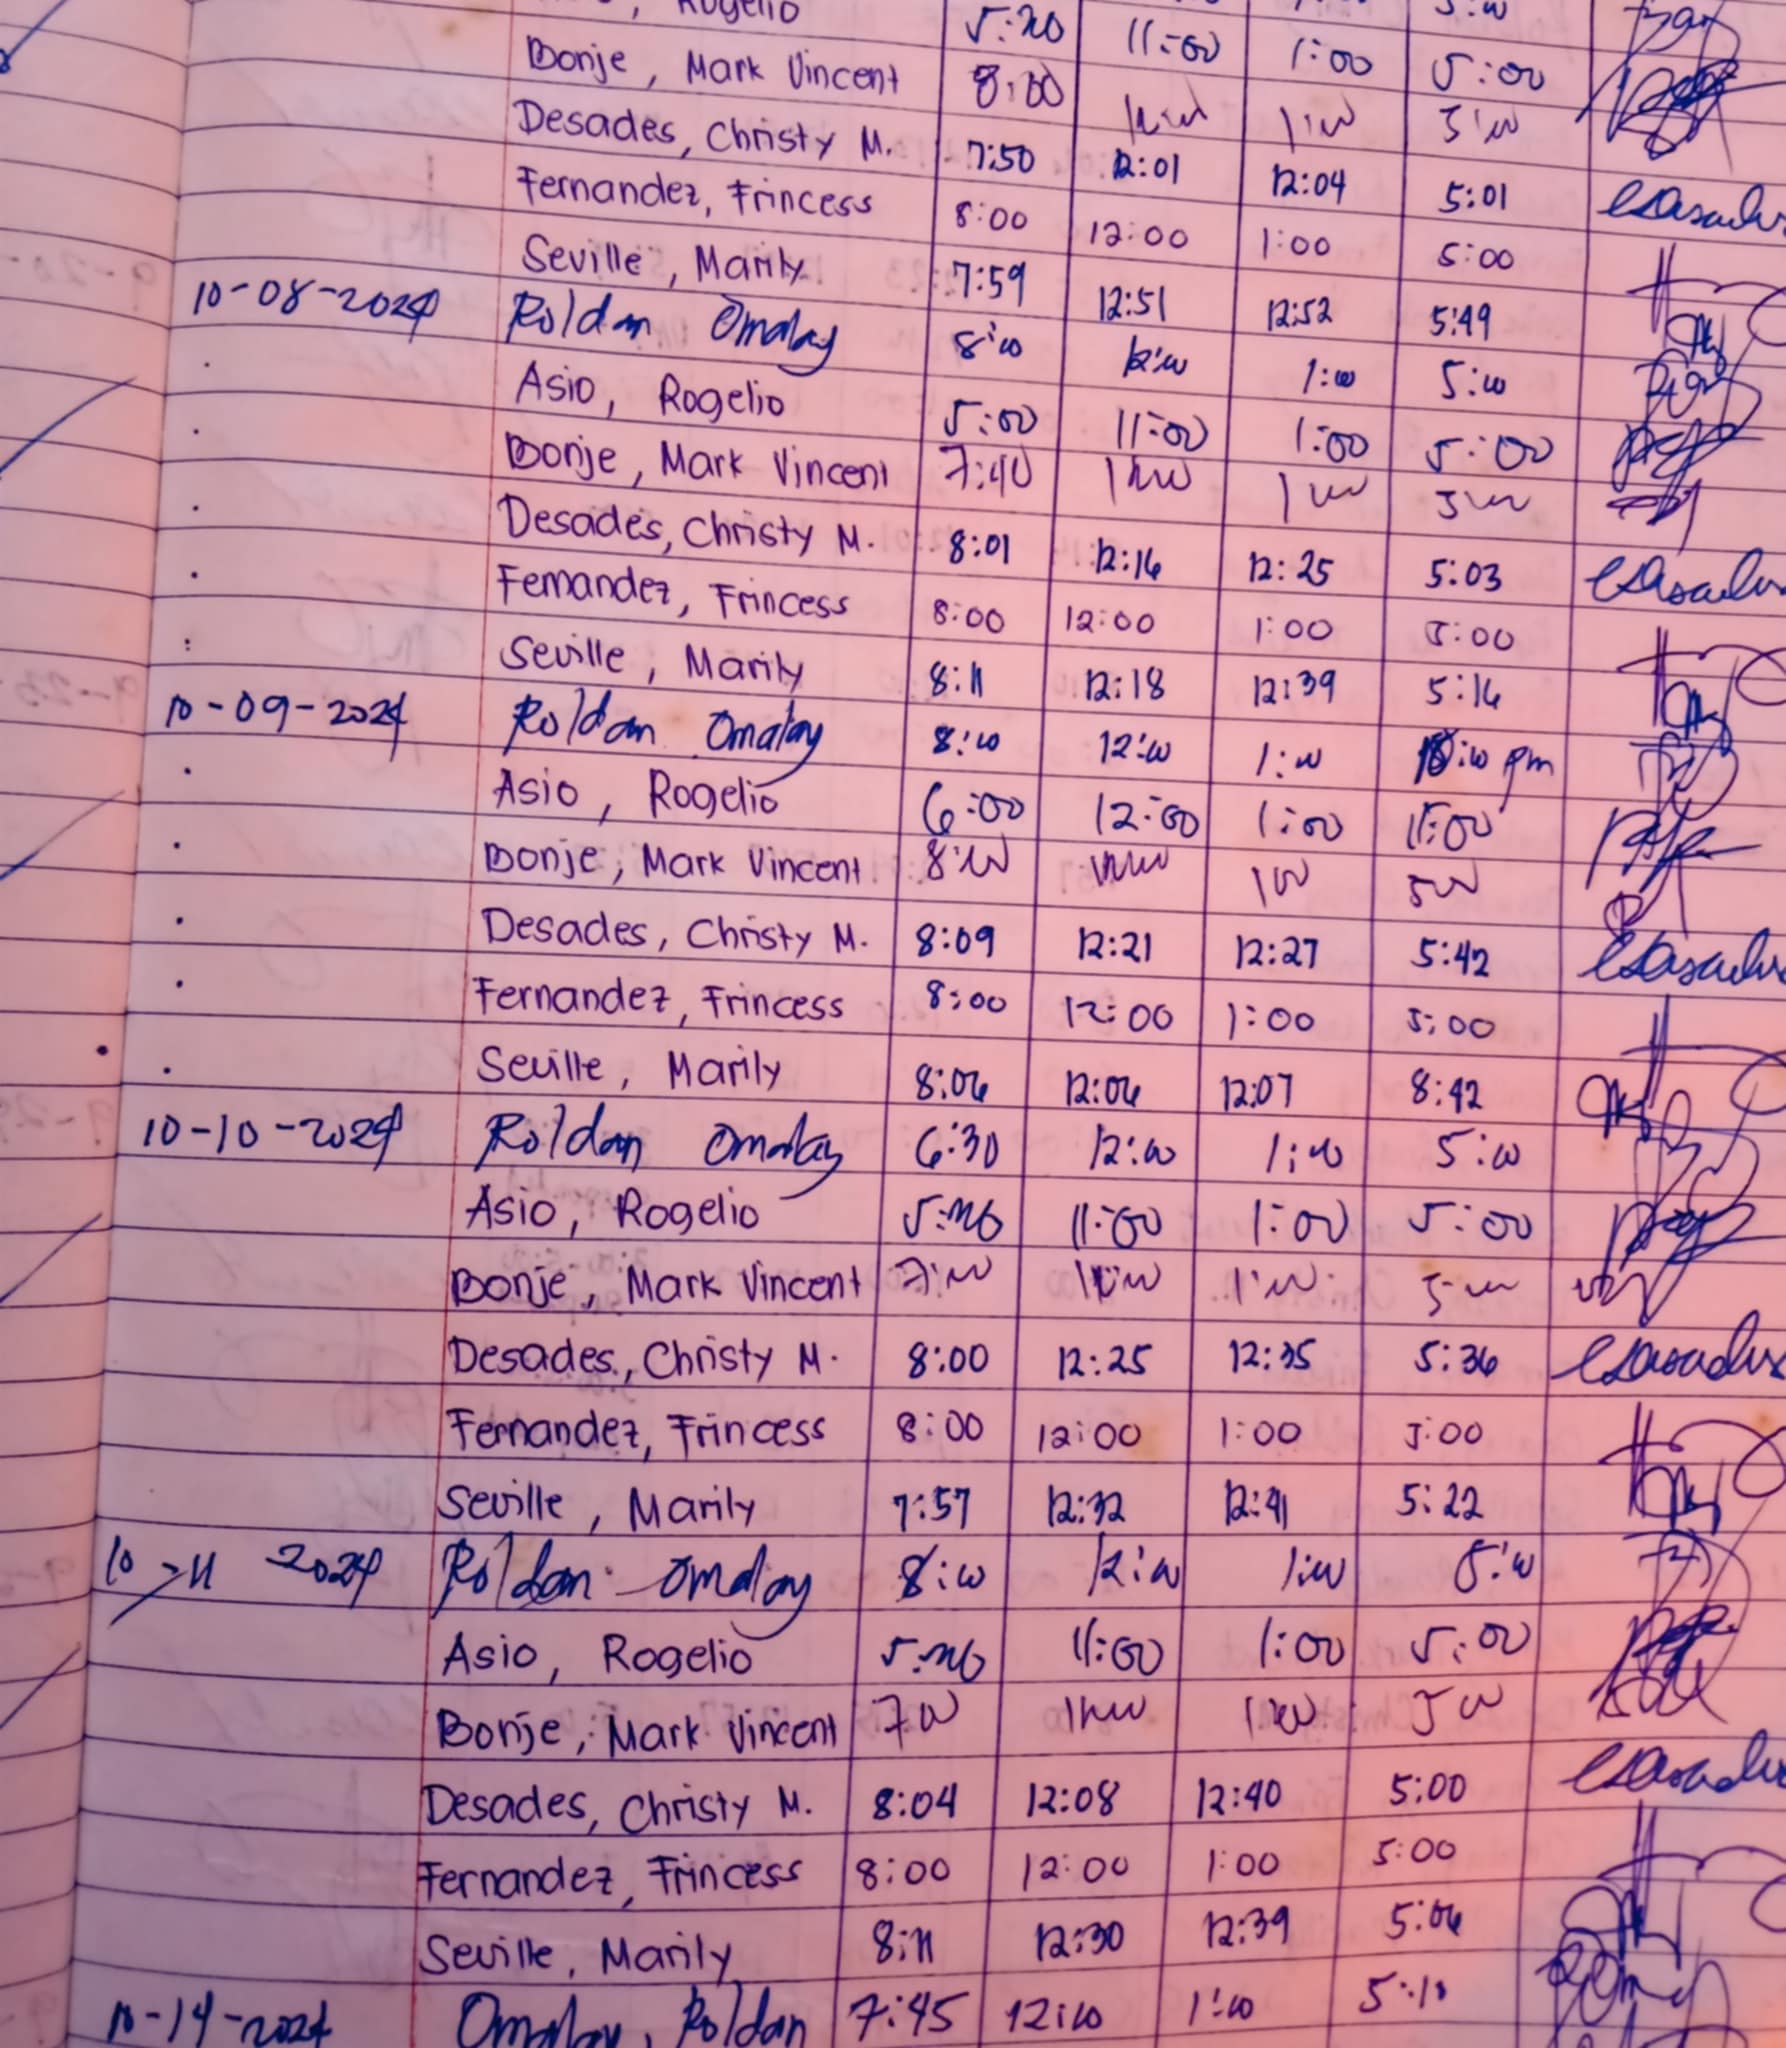 , Rogelio 5:00 11:00 1:00 5:00
Bonje, Mark Vincent 8:00 5:00
Desades, Christy M. 7:50 12:01 12:04 5:01
Fernandez, Frincess 8:00 12:00 1:00 5:00
Seville, Marily 7:59 12:51 12:52 5:49
10-08-2024 Roldan Omalay 8:00 12:00 1:00 5:00
Asio, Rogelio 5:00 11:00 1:00 5:00
Bonje, Mark Vincent 7:40
Desades, Christy M. 8:01 12:16 12:25 5:03
Fernandez, Frincess 8:00 12:00 1:00 5:00
Seville, Marily 8:11 12:18 12:39 5:16
10-09-2024 Roldan Omalay 8:00 12:00 1:00 pm
Asio, Rogelio 6:00 12:00 1:00
Bonje, Mark Vincent 8:00
Desades, Christy M. 8:09 12:21 12:27 5:42
Fernandez, Frincess 8:00 12:00 1:00 5:00
Seville, Marily 8:06 12:06 12:07 8:42
10-10-2024 Roldan Omalay 6:30 12:00 1:00 5:00
Asio, Rogelio 11:00 1:00 5:00
Bonje, Mark Vincent 7:00
Desades, Christy M. 8:00 12:25 12:35 5:36
Fernandez, Frincess 8:00 12:00 1:00 5:00
Seville, Marily 7:57 12:32 12:41 5:22
10-11 2024 Roldan Omalay 8:00 12:00 1:00 5:00
Asio, Rogelio 11:00 1:00 5:00
Bonje, Mark Vincent
Desades, Christy M. 8:04 12:08 12:40 5:00
Fernandez, Frincess 8:00 12:00 1:00 5:00
Seville, Marily 8:11 12:30 12:39 5:06
10-14-2024 Omalay, Roldan 7:45 12:00 1:00 5:10